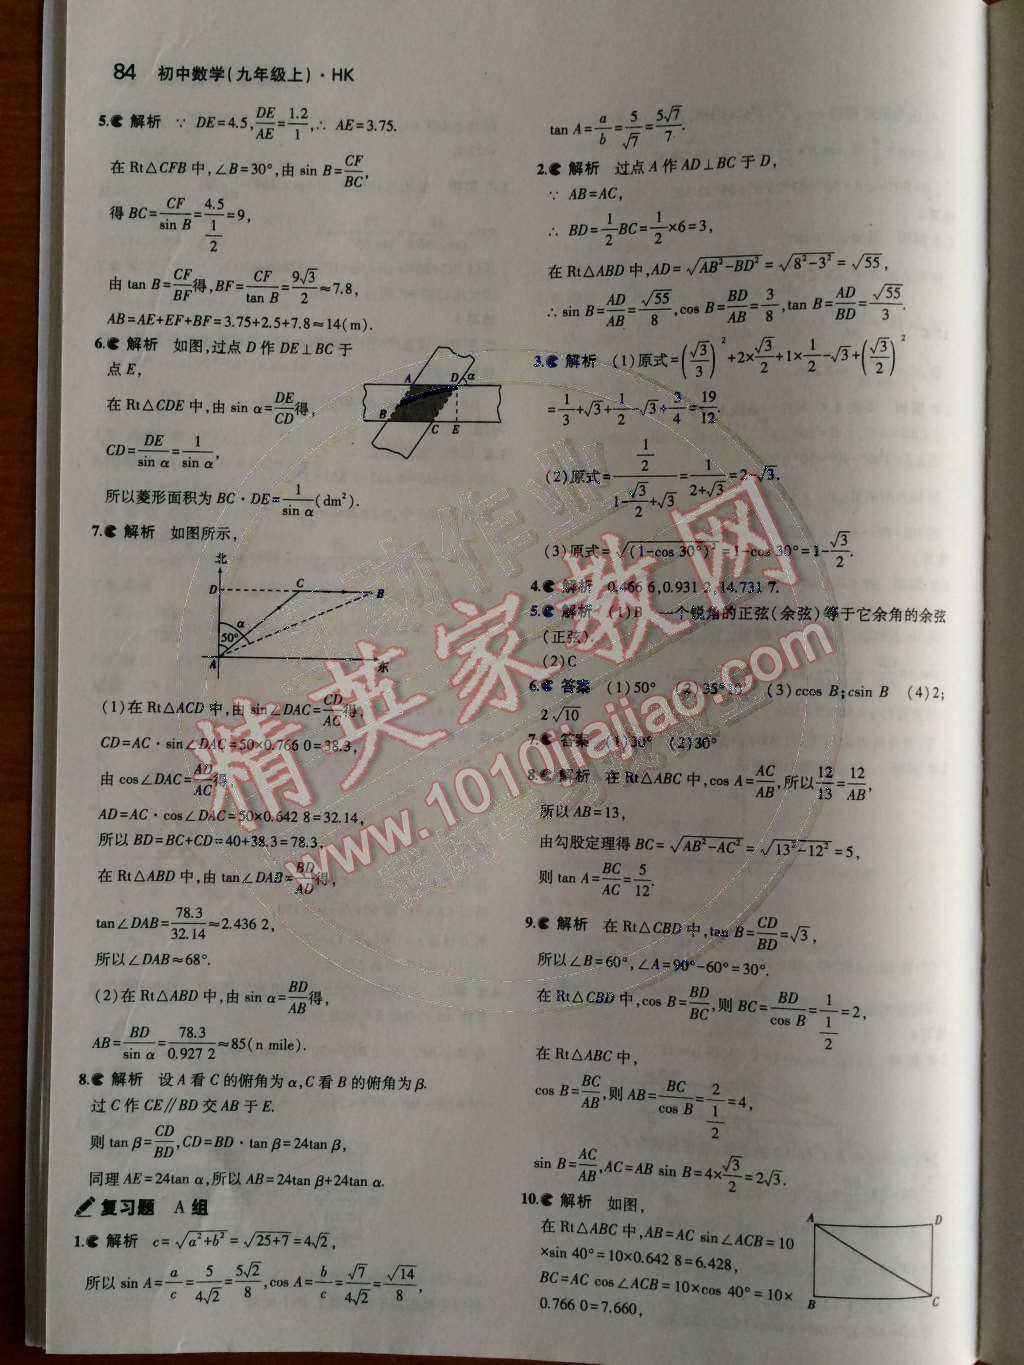 84 初中数学(九年级上)·HK
5. 解析 ∵ DE=4.5, DE/AE=1.2/1, ∴ AE=3.75.
在 Rt△CFB 中,∠B=30°,由 sin B=CF/BC,
得 BC=CF/sin B=4.5/(1/2)=9,
由 tan B=CF/BF得,BF=CF/tan B=9√3/2≈7.8,
AB=AE+EF+BF=3.75+2.5+7.8≈14(m).
6. 解析 如图,过点 D 作 DE⊥BC 于
点 E,
在 Rt△CDE 中,由 sin α=DE/CD得,
CD=DE/sin α=1/sin α,
所以菱形面积为 BC·DE=1/sin α(dm²).
A D α
B C E
7. 解析 如图所示,
北
D C B
α
50°
A 东
(1)在 Rt△ACD 中,由 sin∠DAC=CD/AC得,
CD=AC·sin∠DAC=50×0.766 0=38.3,
由 cos∠DAC=AD/AC得,
AD=AC·cos∠DAC=50×0.642 8=32.14,
所以 BD=BC+CD=40+38.3=78.3,
在 Rt△ABD 中,由 tan∠DAB=BD/AD得,
tan∠DAB=78.3/32.14≈2.436 2,
所以∠DAB≈68°.
(2)在 Rt△ABD 中,由 sin α=BD/AB得,
AB=BD/sin α=78.3/0.927 2≈85(n mile).
8. 解析 设 A 看 C 的俯角为 α,C 看 B 的俯角为 β.
过 C 作 CE∥BD 交 AB 于 E.
则 tan β=CD/BD,CD=BD·tan β=24tan β,
同理 AE=24tan α,所以 AB=24tan β+24tan α.
复习题 A 组
1. 解析 c=√(a²+b²)=√(25+7)=4√2,
所以 sin A=a/c=5/(4√2)=5√2/8,cos A=b/c=√7/(4√2)=√14/8,
tan A=a/b=5/√7=5√7/7.
2. 解析 过点 A 作 AD⊥BC 于 D,
∵ AB=AC,
∴ BD=1/2 BC=1/2×6=3,
在 Rt△ABD 中,AD=√(AB²-BD²)=√(8²-3²)=√55,
∴ sin B=AD/AB=√55/8,cos B=BD/AB=3/8,tan B=AD/BD=√55/3.
3. 解析 (1)原式=(√3/3)²+2×√3/2+1×1/2-√3+(√3/2)²
=1/3+√3+1/2-√3+3/4=19/12.
(2)原式=(1/2)/(1-√3/2+√3)=1/(2+√3)=2-√3.
(3)原式=√((1-cos 30°)²)=1-cos 30°=1-√3/2.
4. 解析 0.466 6,0.931 2,14.731 7.
5. 解析 (1)B 一个锐角的正弦(余弦)等于它余角的余弦
(正弦).
(2)C
6. 答案 (1)50° (2)35°10′ (3)ccos B;csin B (4)2;
2√10
7. 答案 (1)30° (2)30°
8. 解析 在 Rt△ABC 中,cos A=AC/AB,所以12/13=12/AB,
所以 AB=13,
由勾股定理得 BC=√(AB²-AC²)=√(13²-12²)=5,
则 tan A=BC/AC=5/12.
9. 解析 在 Rt△CBD 中,tan B=CD/BD=√3,
所以∠B=60°,∠A=90°-60°=30°.
在 Rt△CBD 中,cos B=BD/BC,则 BC=BD/cos B=1/(1/2)=2,
在 Rt△ABC 中,
cos B=BC/AB,则 AB=BC/cos B=2/(1/2)=4,
sin B=AC/AB,AC=AB sin B=4×√3/2=2√3.
10. 解析 如图,
在 Rt△ABC 中,AB=AC sin∠ACB=10
×sin 40°=10×0.642 8=6.428,
BC=AC cos∠ACB=10×cos 40°=10×
0.766 0=7.660,
A D
B C
精英家教网
www.1010jiajiao.com